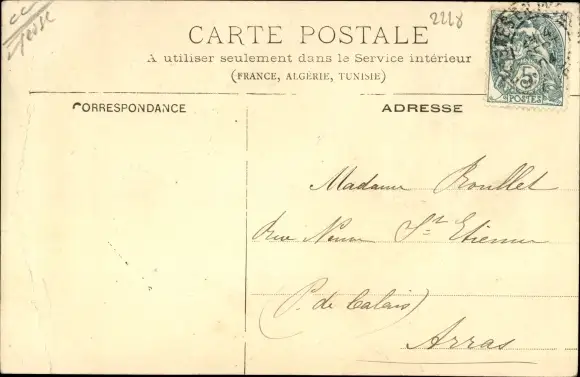 CC
2218
CARTE POSTALE
A utiliser seulement dans le Service intérieur
(FRANCE, ALGÉRIE, TUNISIE)
5c
POSTES
CORRESPONDANCE
ADRESSE
Madame Roullet
Rue Neuve St Etienne
(P. de Calais)
Arras